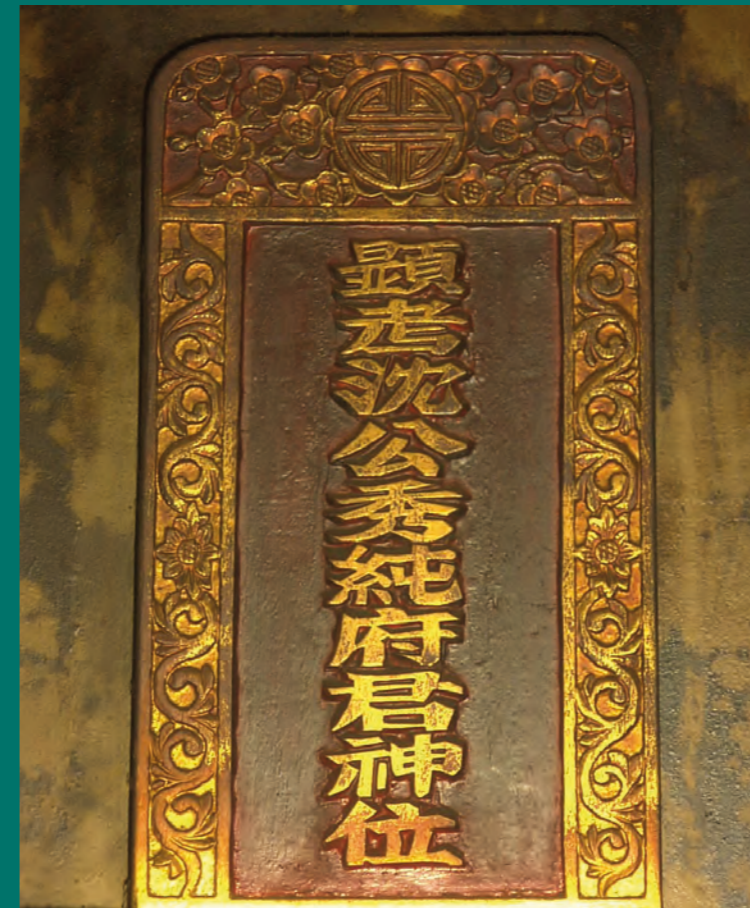 顕考沈公秀純府君神位